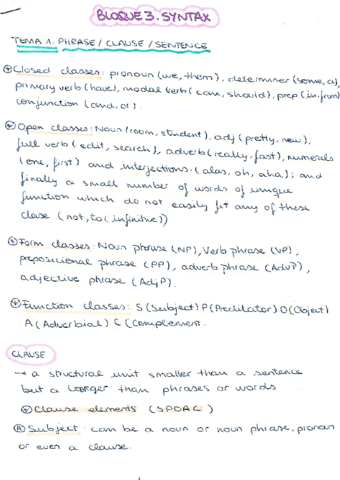 BLOQUE 3. SYNTAX
TEMA 1. PHRASE / CLAUSE / SENTENCE
Closed classes: pronoun (we, them), determiner (some, a),
primary verb (have), modal verb (can, should), prep (in, from)
conjunction (and, or).
Open classes: Noun (room, student), adj (pretty, new),
full verb (edit, search), adverb (really, fast), numerals
(one, first) and interjections (alas, oh, aha); and
finally a small number of words of unique
function which do not easily fit any of these
clase (not, to (infinitive))
Form classes: Noun phrase (NP), Verb phrase (VP),
prepositional phrase (PP), adverb phrase (AdvP),
adjective phrase (AdjP).
Function classes: S (Subject) P (Predicator) O (Object)
A (Adverbial) C (Complement.
CLAUSE
→ a structural unit smaller than a sentence
but a larger than phrases or words
Clause elements (SPOAC)
Subject: can be a noun or noun phrase, pronoun
or even a clause.